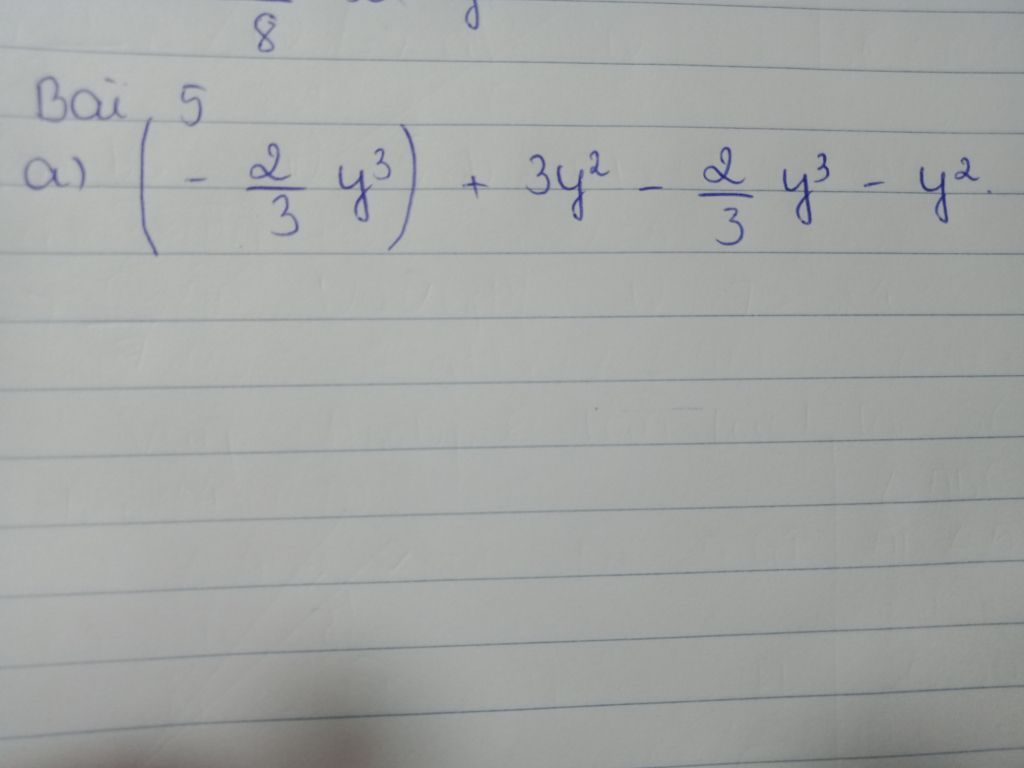 8
Bài 5
a) (- 2/3 y³) + 3y² - 2/3 y³ - y².